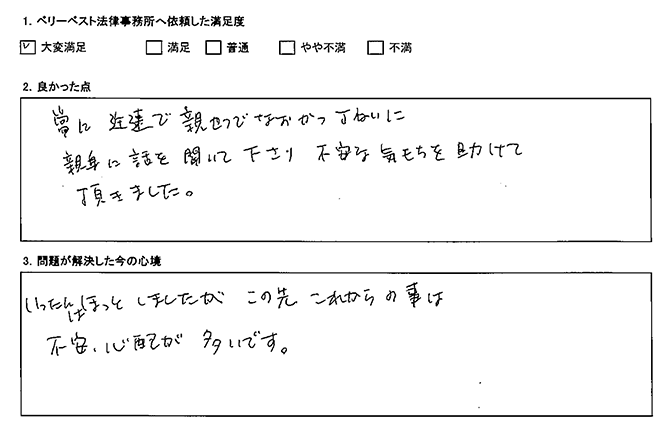 1. ベリーベスト法律事務所へ依頼した満足度
☑ 大変満足 □ 満足 □ 普通 □ やや不満 □ 不満
2. 良かった点
常に 迅速で 親切でなおかつ丁ねいに
親身に 話を 聞いて 下さり 不安な 気もちを 助けて
頂きました。
3. 問題が解決した今の心境
いったんはほっと しましたが この先 これからの 事は
不安、心配が 多いです。